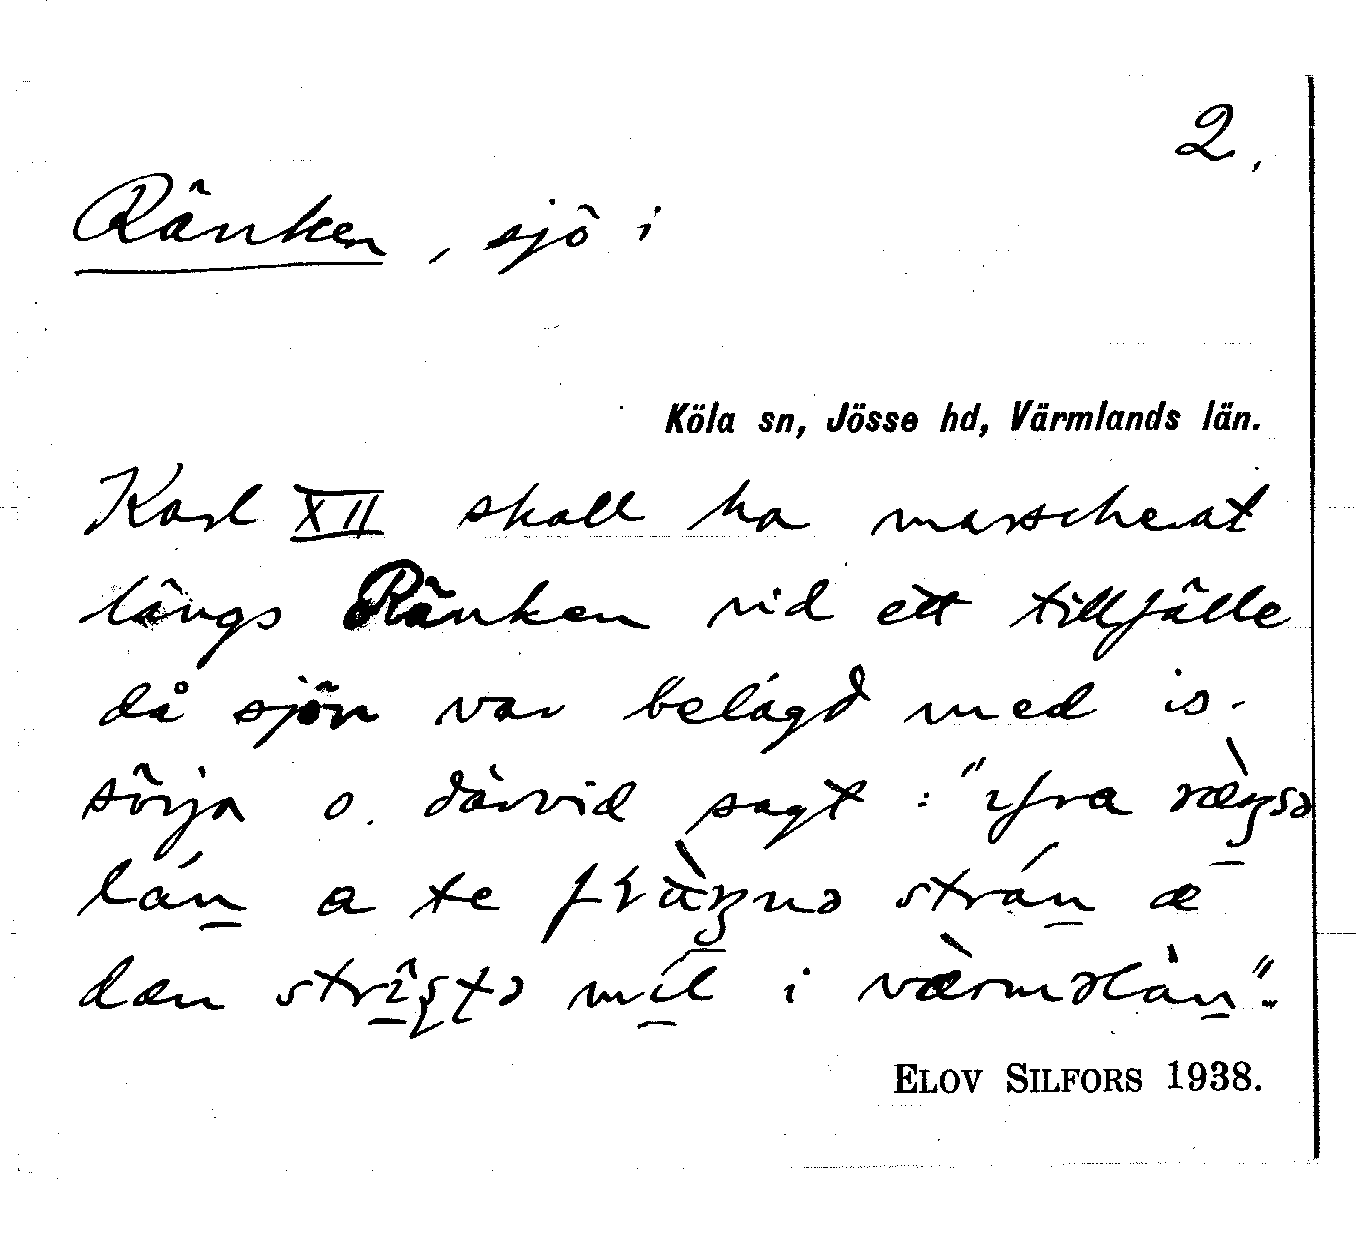 2.
Ränken, sjö i
Köla sn, Jösse hd, Värmlands län.
Karl XII skall ha marscherat
längs Ränken vid ett tillfälle
då sjön var belagd med is-
sörja o. därvid sagt: "
lán a te strán æ
dæn mil i værmǝlàn".
ELOV SILFORS 1938.